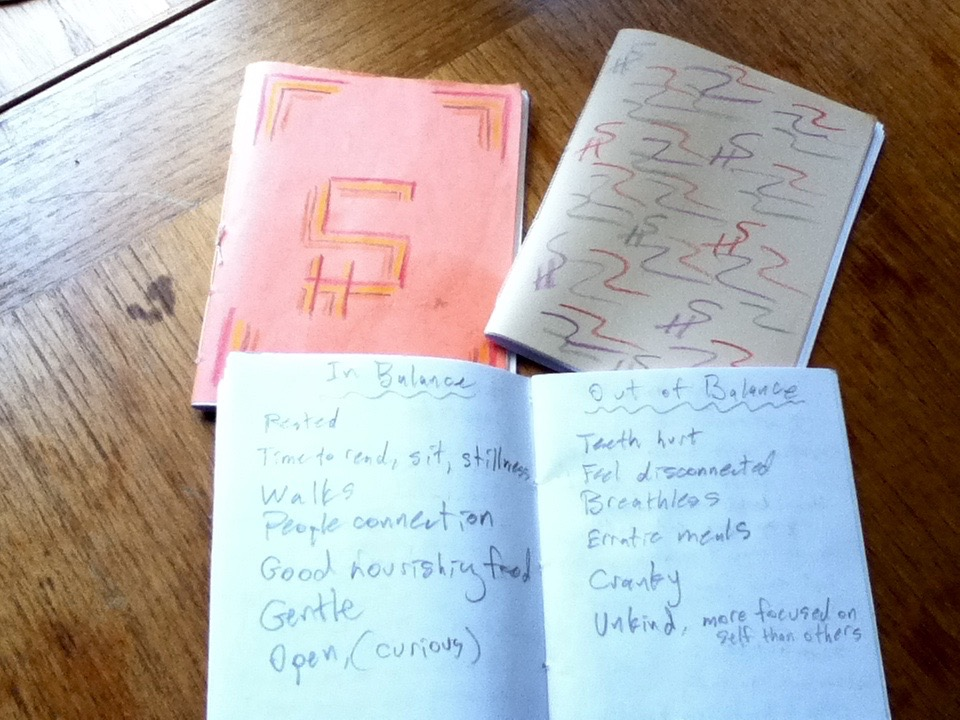 In Balance
Rested
Time to read, sit, stillness
Walks
People connection
Good nourishing food
Gentle
Open, (curious)
Out of Balance
Teeth hurt
Feel disconnected
Breathless
Erratic meals
Cranky
Unkind, more focused on
self than others